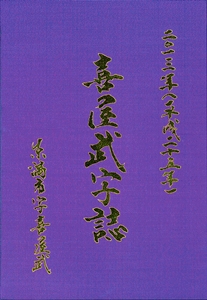 二〇一三年(平成二十五年)
喜屋武字誌
糸満市字喜屋武